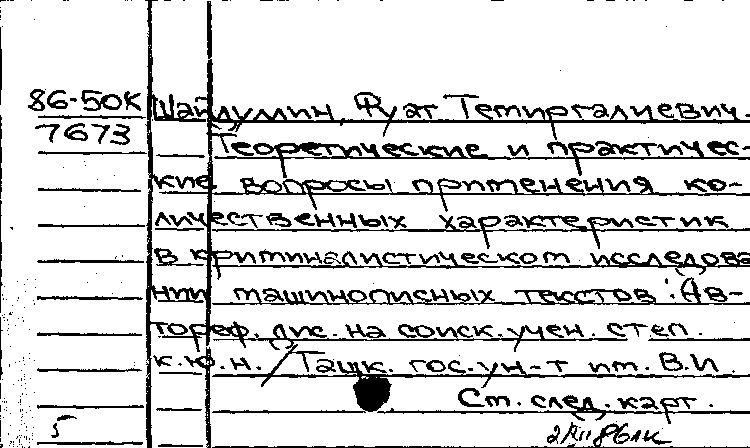 86-50К Шайдуллин, Фуат Темиргалиевич.
7673 Теоретические и практичес-
кие вопросы применения ко-
личественных характеристик
в криминалистическом исследова
нии машинописных текстов : Ав-
тореф. дис. на соиск. учен. степ.
к.ю.н. / Ташк. гос. ун-т им. В.И.
См. след. карт.
5